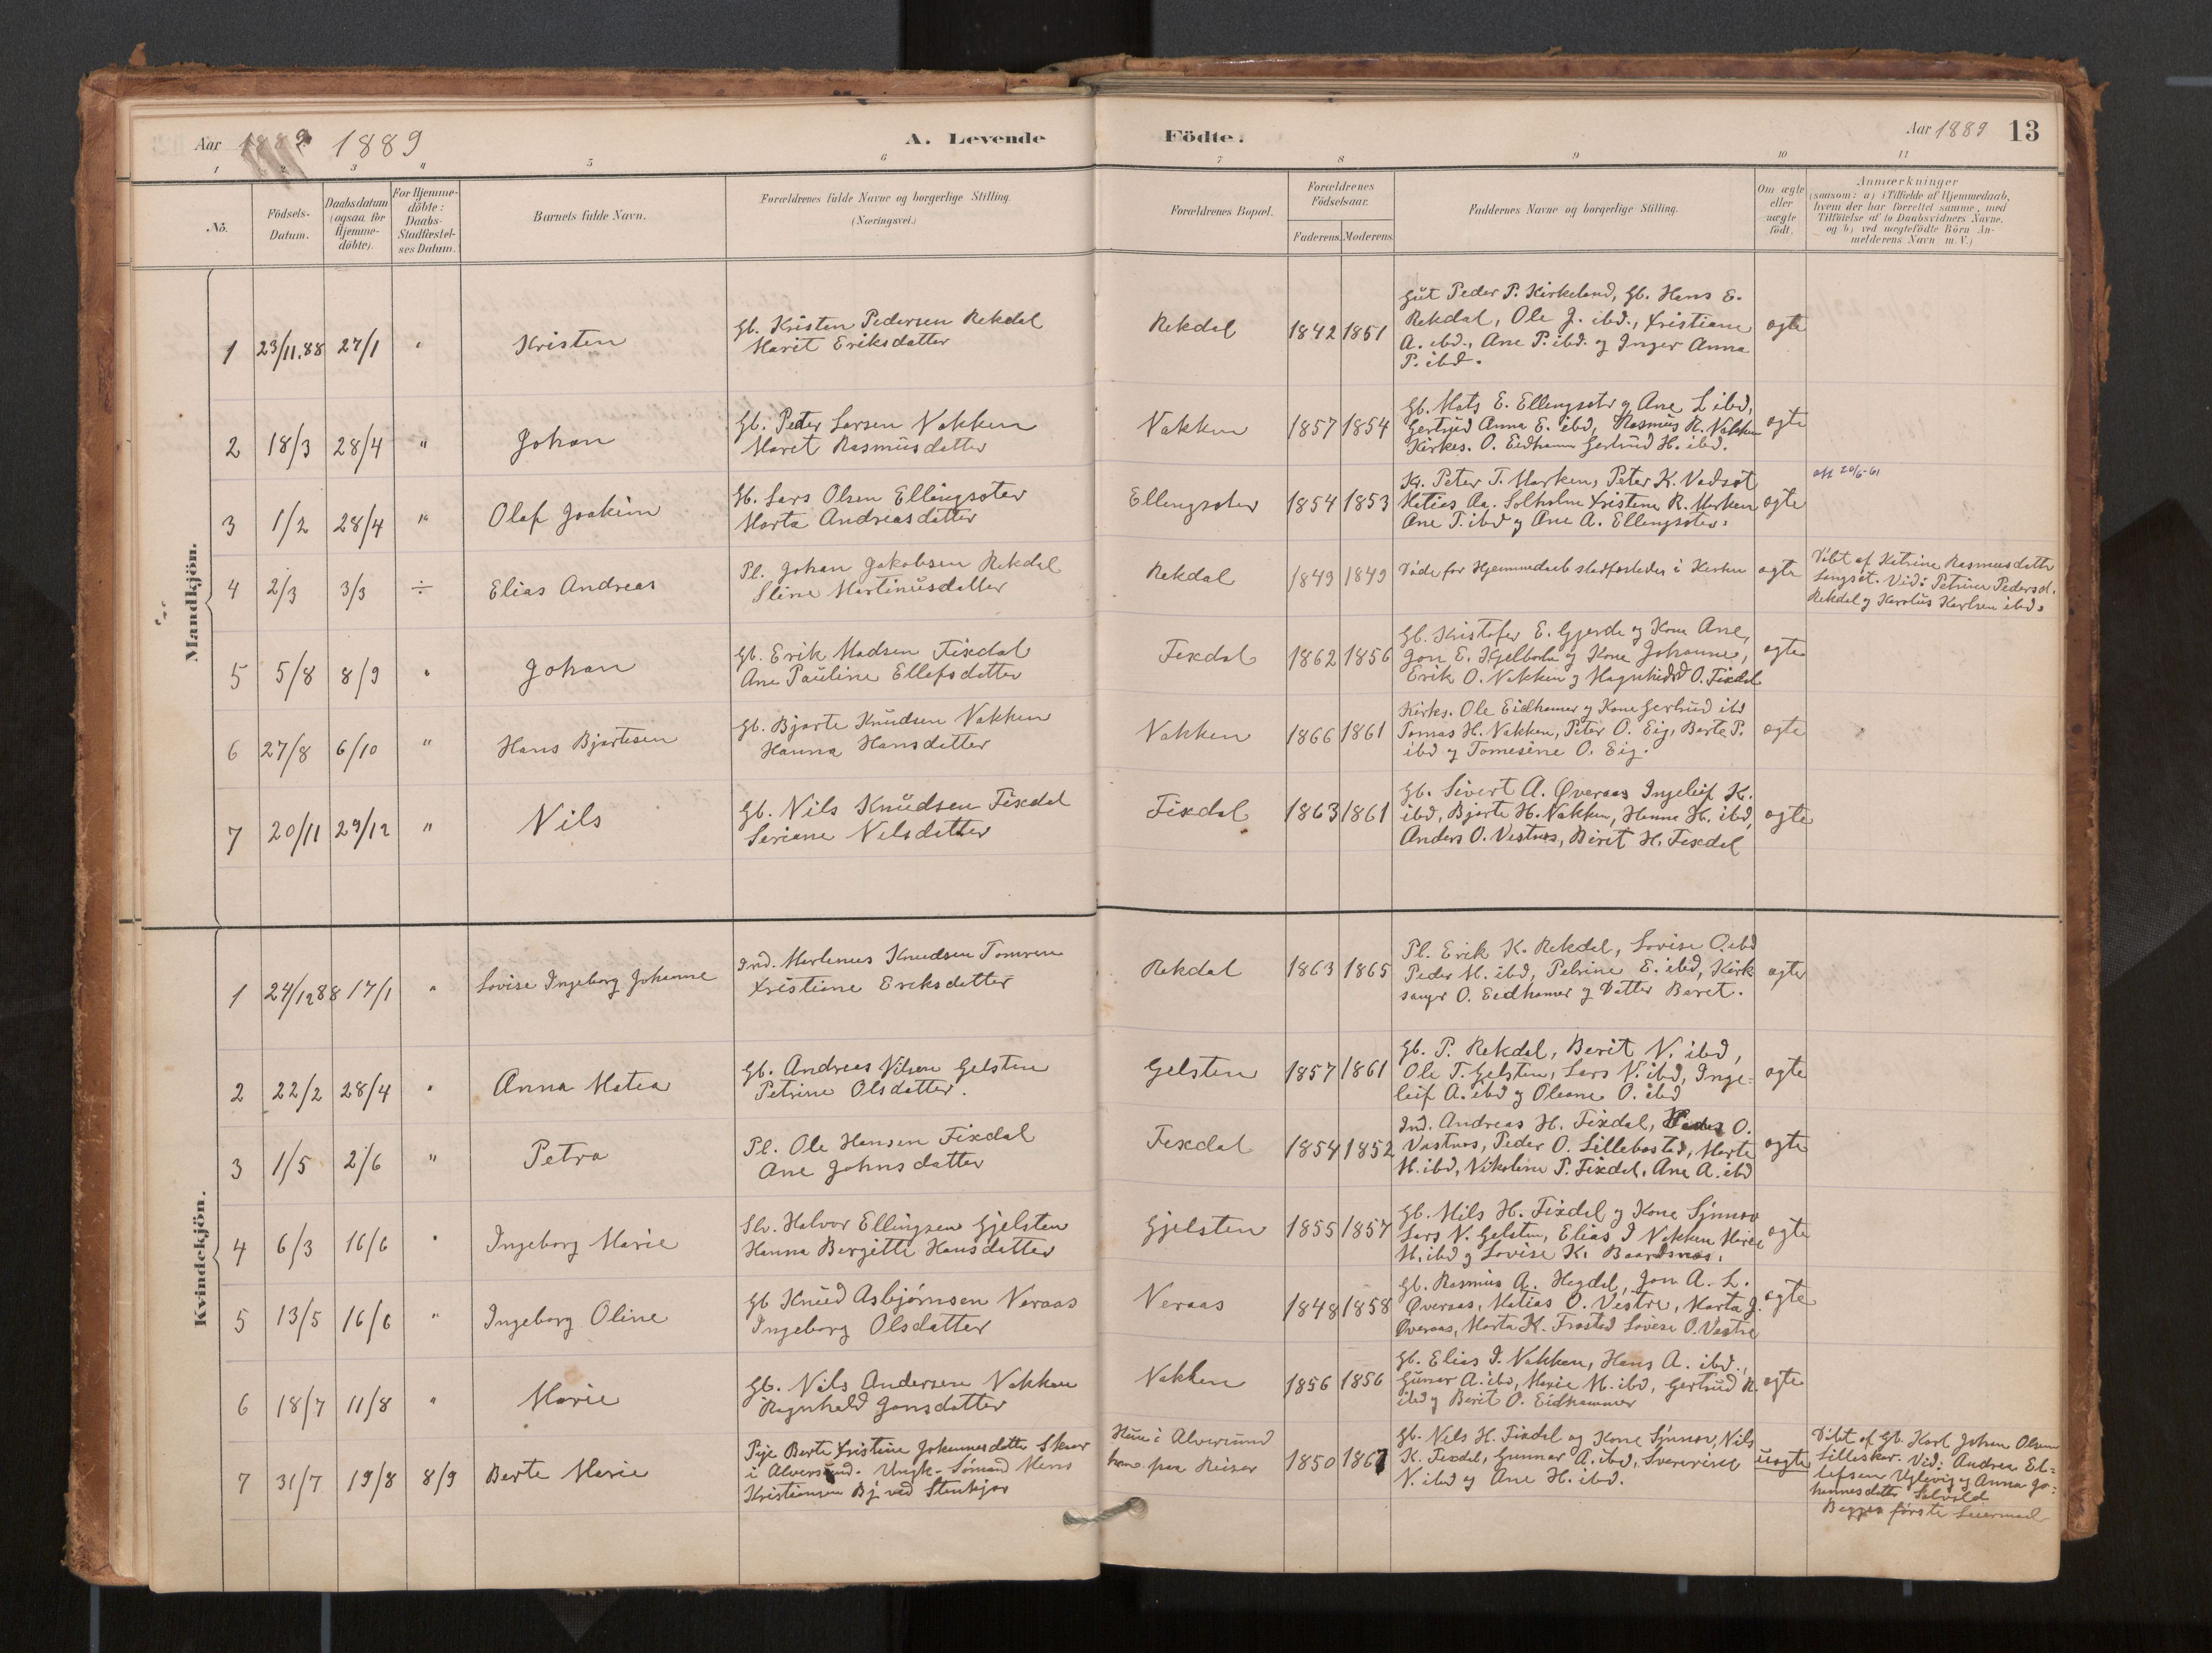 Aar 1889 1889 A. Levende Födte. Aar 1889 13
1 2 3 " 5 6 7 8 9 10 11
No.
Födsels-
Datum.
Daabsdatum
(ogsaa for
Hjemme-
döbte).
For Hjemme-
döbte:
Daabs-
Stadfæstel-
ses Datum.
Barnets fulde Navn.
Forældrenes fulde Navne og borgerlige Stilling.
(Næringsvei.)
Forældrenes Bopæl.
Forældrenes
Födselsaar.
Faderens. Moderens.
Faddernes Navne og borgerlige Stilling.
Om ægte
eller
uægte
födt.
Anmærkninger
(saasom: a) i Tilfælde af Hjemmedaab,
hvem der har forrettet samme, med
Tilföielse af to Daabsvidners Navne,
og b) ved uægtefödte Börn An-
melderens Navn m. V.)
Mandkjön.
1 23/11.88 27/1 " Kristen
Gb. Kristen Pedersen Rekdal
Marit Eriksdatter
Rekdal 1842 1851
Gut Peder P. Kirkeland, Gb. Hans E.
Rekdal, Ole J. ibd., Kristiane
A. ibd., Ane P. ibd. og Inger Anna
P. ibd.
ægte
2 18/3 28/4 " Johan
Gb. Peder Larsen Nakken
Maret Rasmusdatter
Nakken 1857 1854
Gb. Mats E. Ellingsæter og Ane L ibd,
Gertrud Anna E. ibd, Rasmus R. Nakken
Kirkes. O. Eidhamer Gertrud H. ibd.
ægte
3 1/2 28/4 " Olaf Joakim
Gb. Lars Olsen Ellingsæter
Marta Andreasdatter
Ellingsæter 1854 1853
Peter T. Marken, Peter K. Vadsøt
Matias Aa. Solholm Kristine R. Marken
Ane T. ibd og Ane A. Ellingsæter.
ægte
att 20/6-61
4 2/3 3/3 ÷ Elias Andreas
Pl. Johan Jakobsen Rekdal
Sline Martinusdatter
Rekdal 1849 1849
Døde før Hjemmedaab stadfæstedes i Kirken
ægte
Döbt af Katrine Rasmusdatter
Langset. Vid: Petrine Pedersd.
Rekdal og Karolus Karlsen ibd.
5 5/8 8/9 " Johan
Gb. Erik Madsen Fixdal
Ane Pauline Ellefsdatter
Fixdal 1862 1856
Gb. Kristofer E. Gjerde og Kone Ane,
Jon E. Kjelbotn og Kone Johanne,
Erik O. Nakken og Magnhild O. Fixdal
ægte
6 27/8 6/10 " Hans Bjartesen
Gb. Bjarte Knudsen Nakken
Hanna Hansdatter
Nakken 1866 1861
Kirks. Ole Eidhamer og Kone Gertrud ibd
Tomas H. Nakken, Peter O. Eig, Berte P.
ibd og Tomesine O. Eig.
ægte
7 20/11 29/12 " Nils
Gb. Nils Knudsen Fixdal
Seriane Nilsdatter
Fixdal 1863 1861
Gb. Sivert A. Øveraas Ingeleif K.
ibd, Bjarte H. Nakken, Hanna H. ibd,
Anders O. Vestnes, Birit H. Fixdal
ægte
Kvindekjön.
1 24/1288 17/1 " Lovise Ingeborg Johanne
Ind. Martinus Knudsen Tomren
Kristiane Eriksdatter
Rekdal 1863 1865
Pl. Erik K. Rekdal, Lovise O. ibd
Peder M. ibd, Petrine E. ibd, Kirk
sanger O. Eidhamer og Datter Beret.
ægte
2 22/2 28/4 " Anna Matea
Gb. Andreas Nilsen Gelsten
Petrine Olsdatter.
Gelsten 1857 1861
Gb. P. Rekdal, Berit N. ibd,
Ole T. Gelsten, Lars N. ibd, Inge-
leif A. ibd og Oleane O. ibd
ægte
3 1/5 2/6 " Petra
Pl. Ole Hansen Fixdal
Ane Johnsdatter
Fixdal 1854 1852
Ind. Andreas H. Fixdal, O.
Vestnes, Peder O. Lillebostad, Marte
M. ibd, Nikoline P. Fixdal, Ane A. ibd
ægte
4 6/3 16/6 " Ingeborg Marie
Slv. Halvor Ellingsen Gjelsten
Hanna Bergitte Hansdatter
Gjelsten 1855 1857
Gb. Nils H. Fixdal og Kone Synnøv
Lars N. Gelsten, Elias I Nakken Marie
M. ibd og Lovise K. Baardsnes.
ægte
5 13/5 16/6 " Ingeborg Oline
Gb Knud Asbjørnsen Neraas
Ingeborg Olsdatter
Neraas 1848 1858
Gb. Rasmus A. Hagdal, Jon A. L.
Øveraas, Matias O. Vestre, Marta J.
Øveraas, Marta K. Frostad Lovise O. Vestre
ægte
6 18/7 11/8 " Marie
Gb. Nils Andersen Nakken
Ragnheld Jonsdatter
Nakken 1856 1856
Gb. Elias I. Nakken, Hans A. ibd.,
Gunar A. ibd, Marie M. ibd, Gertrud R.
ibd og Berit O. Eidhammer
ægte
7 31/7 19/8 8/9 Berte Marie
Pige Berte Kristine Johannesdatter Skaar
i Alversund. Ungk. Sömand Mons
Kristiansen Bj ved Stenkjær
Hun i Alversund
han paa Reiser
1850 1861
Gb. Nils H. Fixdal og Kone Synnøv, Nils
K. Fixdal, Gunnar A. ibd,
N. ibd og Ane H. ibd.
uægte
Döbt af Gb. Karl Johan Olsen
Lilleskar. Vid: Andrea El-
lefsen og Anna Jo-
hannesdatter
Begges første Leiermaal